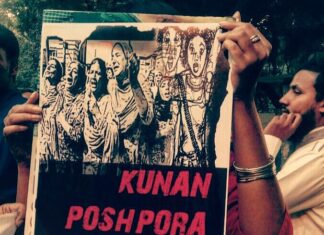 KUNAN
POSHPORA